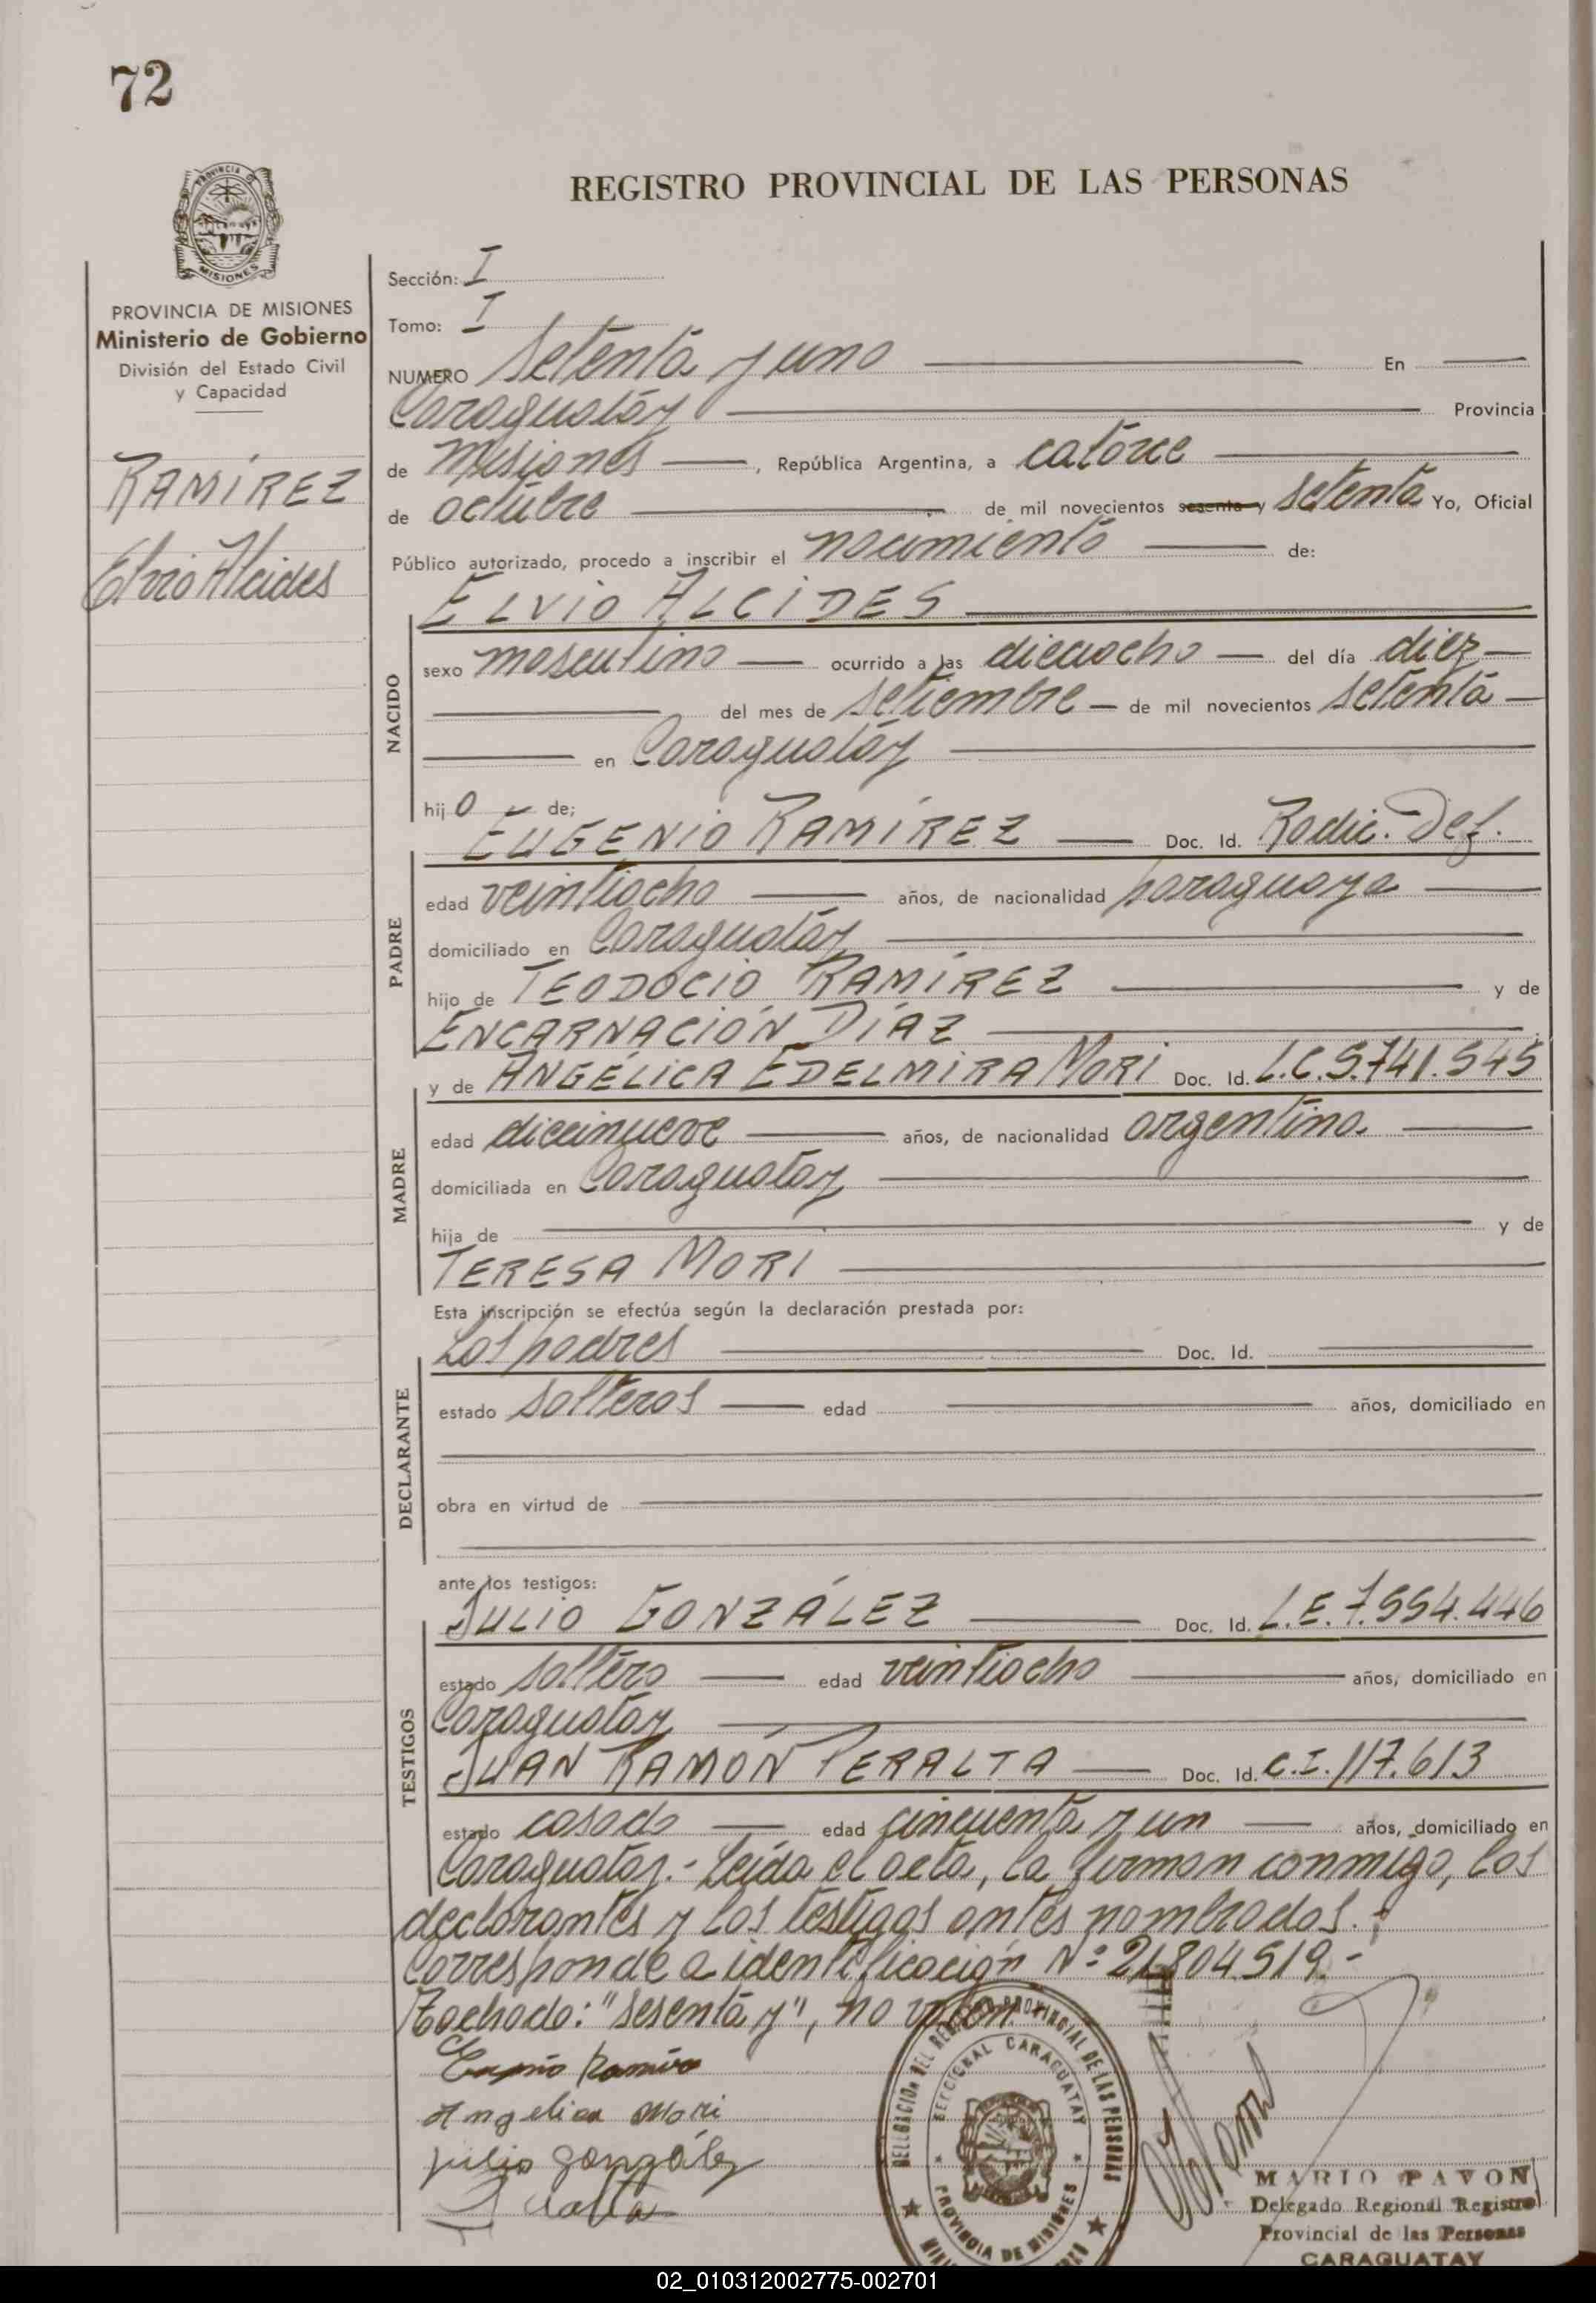 72
PROVINCIA DE
MISIONES
REGISTRO PROVINCIAL DE LAS PERSONAS
PROVINCIA DE MISIONES
Ministerio de Gobierno
División del Estado Civil
y Capacidad
RAMÍREZ
Elvio Alcides
Sección: I
Tomo: I
NUMERO setenta y uno En
Caraguatáy Provincia
de Misiones, República Argentina, a catorce
de octubre de mil novecientos sesenta y setenta Yo, Oficial
Público autorizado, procedo a inscribir el nacimiento de:
ELVIO ALCIDES
NACIDO
sexo masculino ocurrido a las dieciocho del día diez
del mes de setiembre de mil novecientos setenta
en Caraguatáy
hijo de;
EUGENIO RAMÍREZ Doc. Id. Radic. Def.
PADRE
edad veintiocho años, de nacionalidad paraguaya
domiciliado en Caraguatáy
hijo de TEODOCIO RAMÍREZ y de
ENCARNACIÓN DÍAZ
y de ANGÉLICA EDELMIRA MORI Doc. Id. L.C. 5.741.545
MADRE
edad diecinueve años, de nacionalidad argentina
domiciliada en Caraguatay
hija de y de
TERESA MORI
Esta inscripción se efectúa según la declaración prestada por:
Los padres Doc. Id.
DECLARANTE
estado solteros edad años, domiciliado en
obra en virtud de
ante los testigos:
JULIO GONZÁLEZ Doc. Id. L.E. 7.554.446
TESTIGOS
estado soltero edad veintiocho años, domiciliado en
Caraguatay
JUAN RAMÓN PERALTA Doc. Id. C.I. 117.613
estado casado edad cincuenta y un años, domiciliado en
Caraguatay.- Leída el acta, la firman conmigo, los
declarantes y los testigos antes nombrados.-
Corresponde a identificación Nº 21.804.519.-
Tachado: "sesenta y", no valen
Ramírez
Angelica Mori
Julio gonzález
DELEGACION DEL REGISTRO PROVINCIAL DE LAS PERSONAS
SECCIONAL CARAGUATAY
PROVINCIA DE MISIONES
MARIO PAVON
Delegado Regional Registro
Provincial de las Personas
CARAGUATAY
02_010312002775-002701